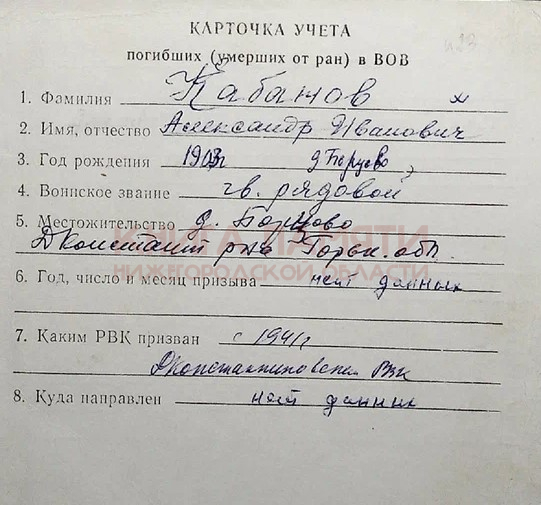 КАРТОЧКА УЧЕТА
погибших (умерших от ран) в ВОВ
1. Фамилия Кабанов
2. Имя, отчество Александр Иванович
3. Год рождения 1903г д Борцово
4. Воинское звание гв. рядовой
5. Местожительство д. Борцово
ДКонстант р-на Горьк. обл.
КНИГА ПАМЯТИ
НИЖЕГОРОДСКОЙ ОБЛАСТИ
6. Год, число и месяц призыва нет данных
7. Каким РВК призван с 1941г
ДКонстантиновским РВК
8. Куда направлен нет данных